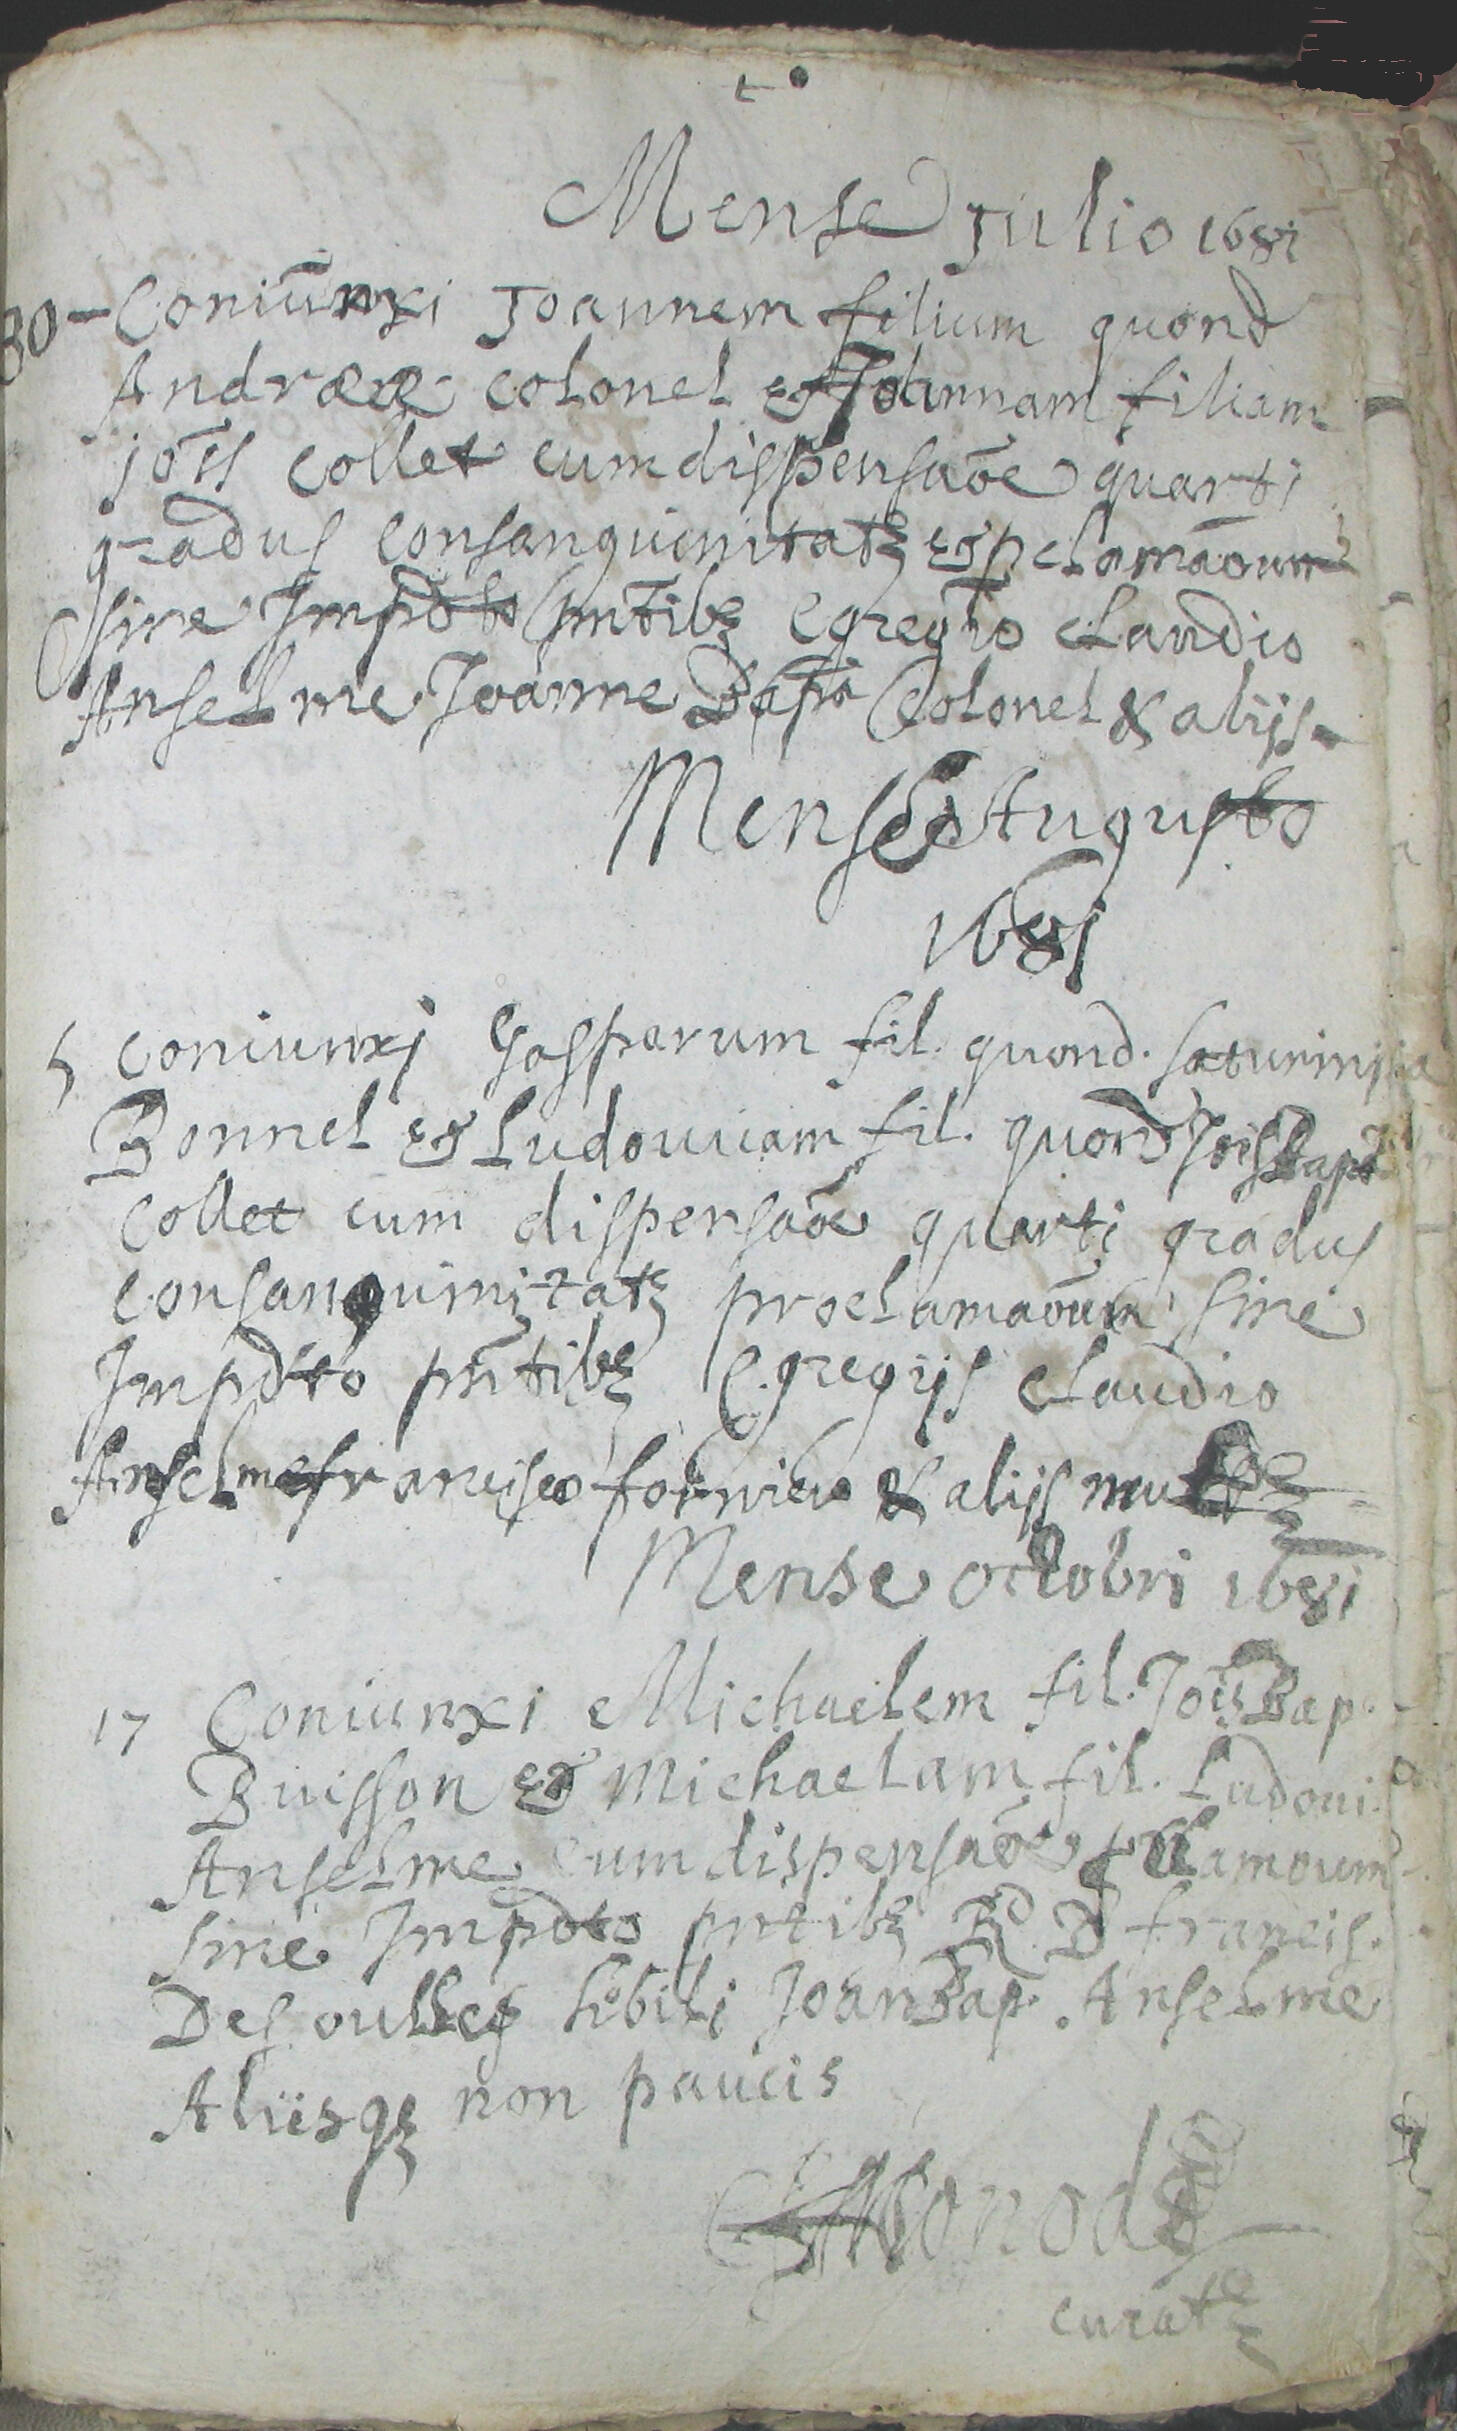 Mense Julio 1681
30 - Coniunxi Joannem filium quond
Andreæ Colonel & Joannam filiam
jōis Collet cum dispensaōe quarti
gradus consanguinitatꝫ & pclamaōum
sine Impōto pn̄tibꝫ Egregio Claudio
Anselme Joanne Bapta Colonel & alijs -
Mense Augusto
1681
5 Coniunxj Gasparum fil. quond. saturninj
Bonnel & Ludouicam fil. quond Jōis Bapt.
Collet cum dispensaōe quarti gradus
consanguinitatꝫ proclamaōum sine
Impdto pn̄tibꝫ Egregijs Claudio
Anselme francisco & alijs multꝫ
Mense octobri 1681
17 Coniunxi Michaelem fil. Jōis Bap.
Buisson & Michaelam fil. Ludoui.
Anselme cum dispensaōe clamoum
sine Impdto pn̄tibꝫ Rd D francis.
Des oulles Joan Bap. Anselme
Aliisqꝫ non paucis
Monod
curatꝫ